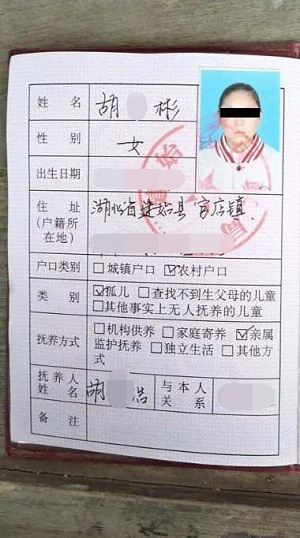 姓名 胡 彬
性别 女
出生日期
住址 湖北省建始县官店镇
(户籍所
在地)
户口类别 □城镇户口 ☑农村户口
类别 ☑孤儿 □查找不到生父母的儿童
□其他事实上无人抚养的儿童
抚养方式 □机构供养 □家庭寄养 ☑亲属
监护抚养 □独立生活 □其他方
式
抚养人
姓名 胡 浩 与本人
关系
备注